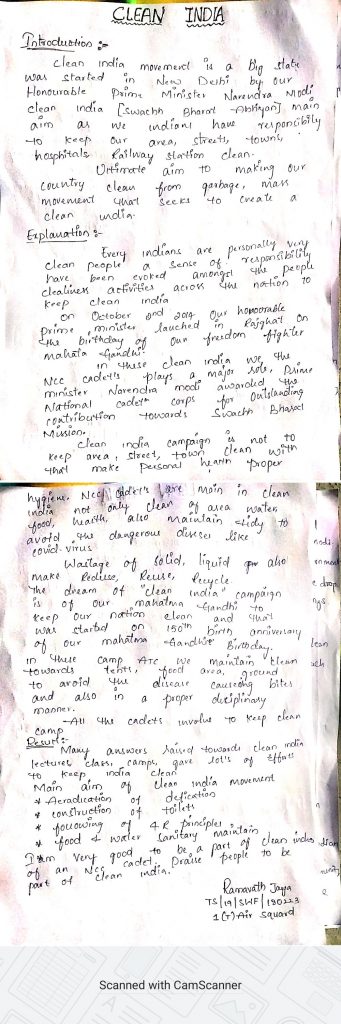 CLEAN INDIA
Introduction :-
Clean india movement is a Big state
was started in New Delhi by our
Honourable Prime Minister Narendra Modi
clean india [Swachh Bharat Abhiyan] main
aim as we indians have responsibily
to keep our area, streets, towns,
hospitals Railway station clean.
Ultimate aim to making our
country clean from garbage, mass
movement that seeks to create a
clean india.
Explanation :-
Every indians are personally very
clean people a sense of responsibility
have been evoked amongst the people
clealiness activities across the nation to
keep clean india
on October 2nd 2014 Our honoorable
prime minister lauched in Rajghat on
the birthday of our freedom fighter
mahata Gandhi.
in these clean india we the
Ncc cadet's plays a major role, Prime
minister Narendra modi awarded the
National cadet corps for Outslanding
contribution towards Swachh Bharat
Mission.
Clean india campaign is not to
keep area, street, town clean with
that make personal health proper
hygiene. Ncc cadet's are main in clean
india not only clean of area water
food, health, also maintain tidy to
avoid the dangerous diseses like
covid. virus
Wastage of solid, liquid also
make Reduse, Reuse, Recycle.
The dream of "clean india" campaign
is of our mahatma Gandhi to
keep our nation clean and that
was started on 150th birth anniversary
of our mahatma Gandhi Birthday.
in these camp ATC we maintain clean
towards tents, food area, ground
to avoid the disease causeing bites
and also in a proper deciplinary
manner.
All the cadets involve to keep clean
camp
Result :-
Many answers raised towards clean india
lectures, class, camps, gave lot's of efforts
to keep india clean
Main aim of clean india movement
* Aeradication of defication
* construction of toilets
* following of 4R principles
* food & water Sanitary maintain
I am very good to be a part of clean india
of an Ncc cadet. Praise people to be
part of clean india.
Ramavath Jaya
TS/19/SWF/180223
1(T) Air squard
Scanned with CamScanner